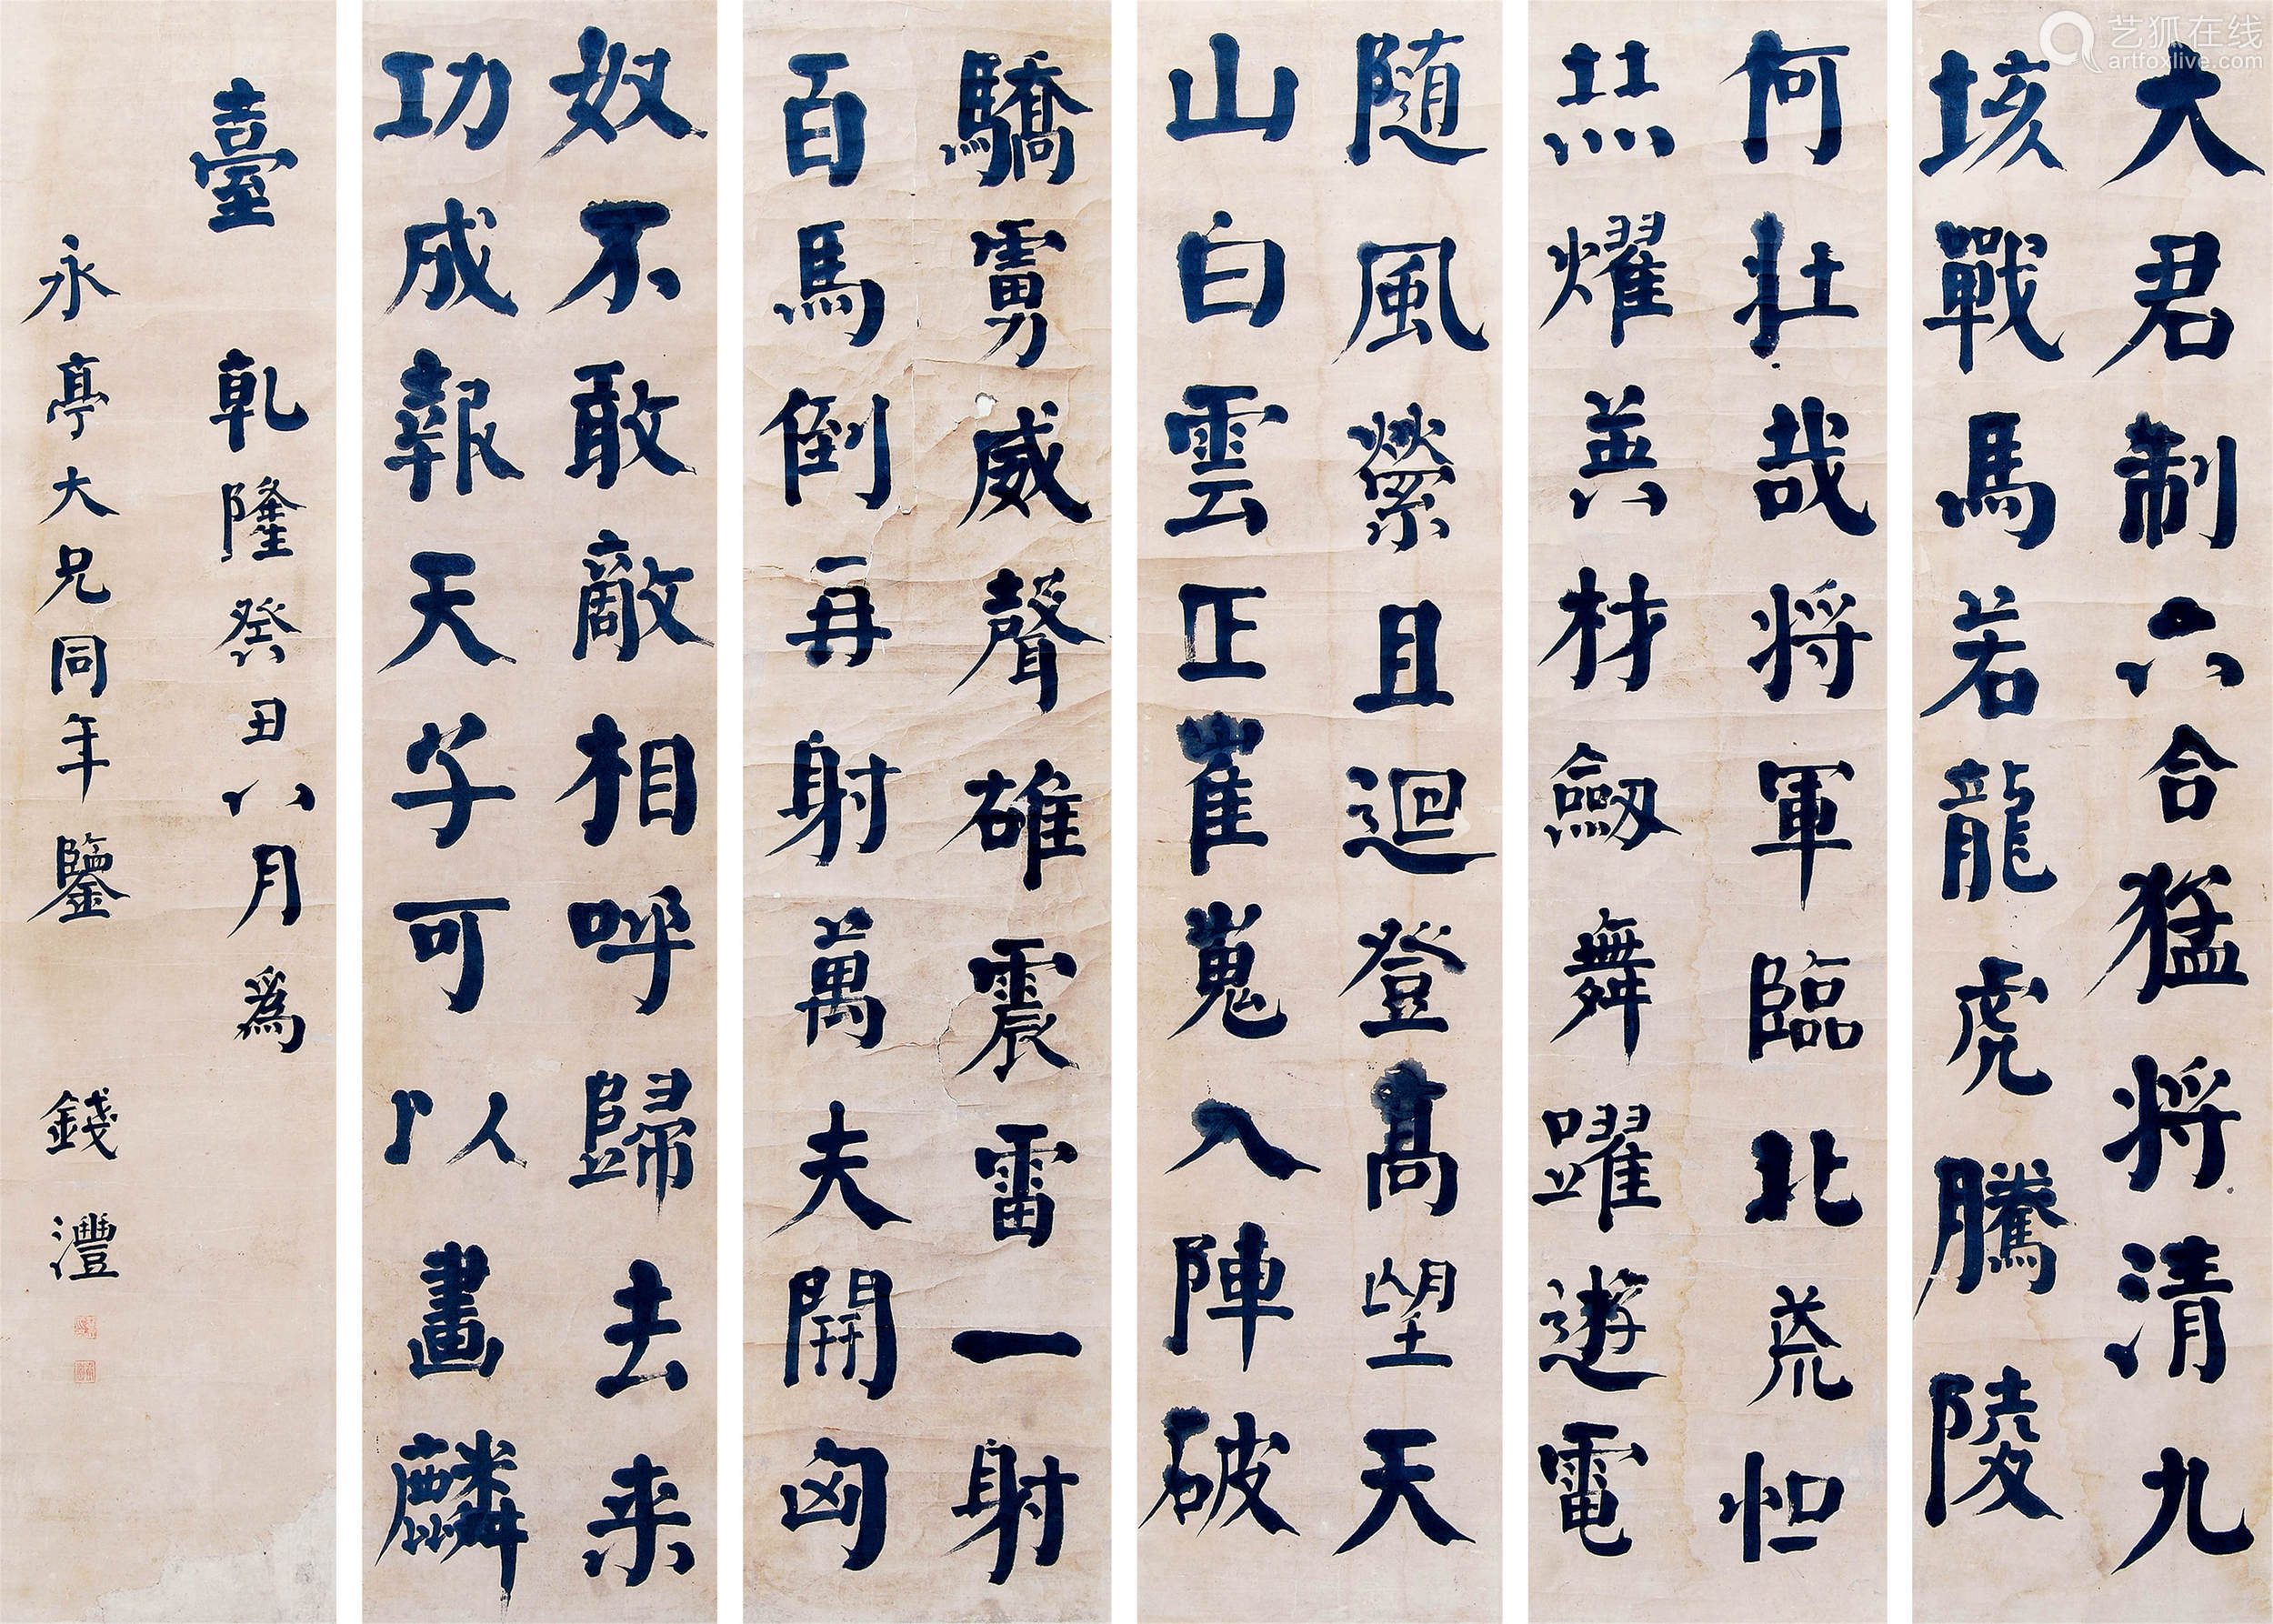 大君制六合猛将清九
垓戰馬若龍虎騰陵
何壮哉将軍臨北荒怛
赫耀英材劒舞躍遊電
随風縈且迴登髙望天
山白雲正崔嵬入陣破
驕虜威聲雄震雷一射
百馬倒再射萬夫開匈
奴不敢敵相呼歸去来
功成報天子可以畫麟
臺 乾隆癸丑八月為
永亭大兄同年鑒 錢灃
艺狐在线
artfoxlive.com